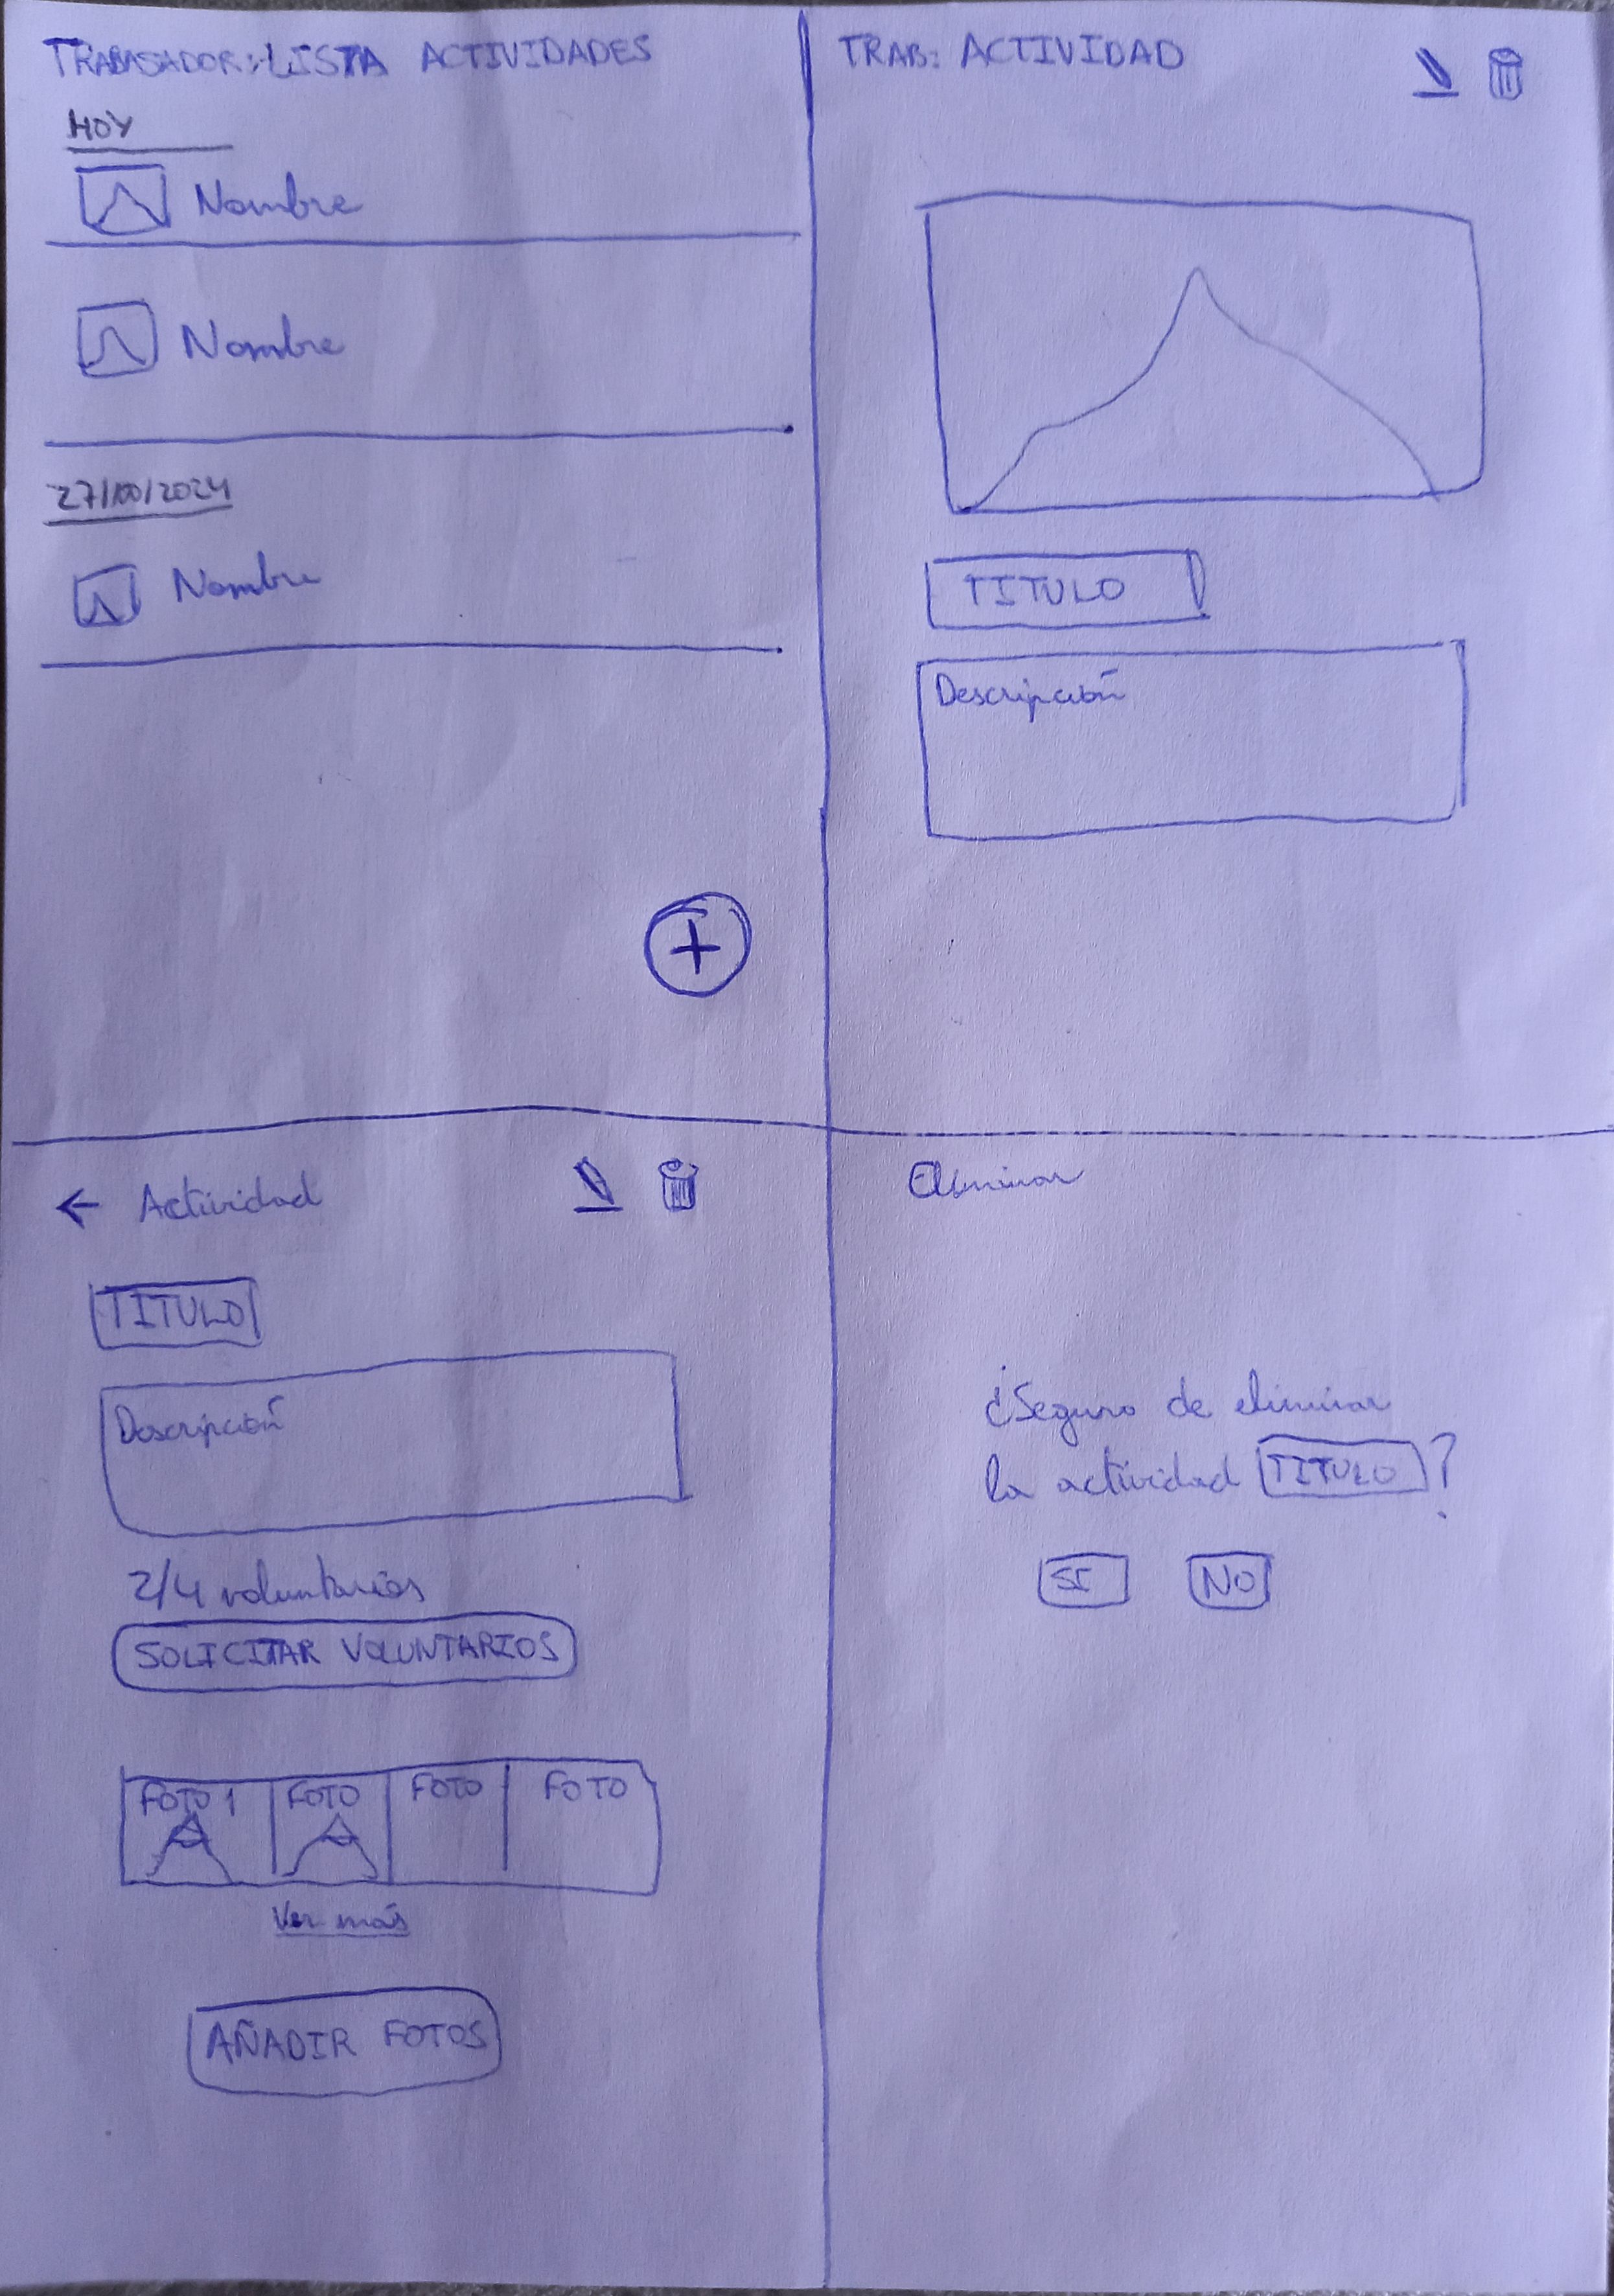 TRABAJADOR: LISTA ACTIVIDADES
HOY
Nombre
Nombre
27/10/2024
Nombre
+
TRAB: ACTIVIDAD
TITULO
Descripción
← Actividad
TITULO
Descripción
2/4 voluntarios
SOLICITAR VOLUNTARIOS
FOTO 1 FOTO FOTO FOTO
Ver más
AÑADIR FOTOS
Eliminar
¿Seguro de eliminar
la actividad TITULO?
SI NO